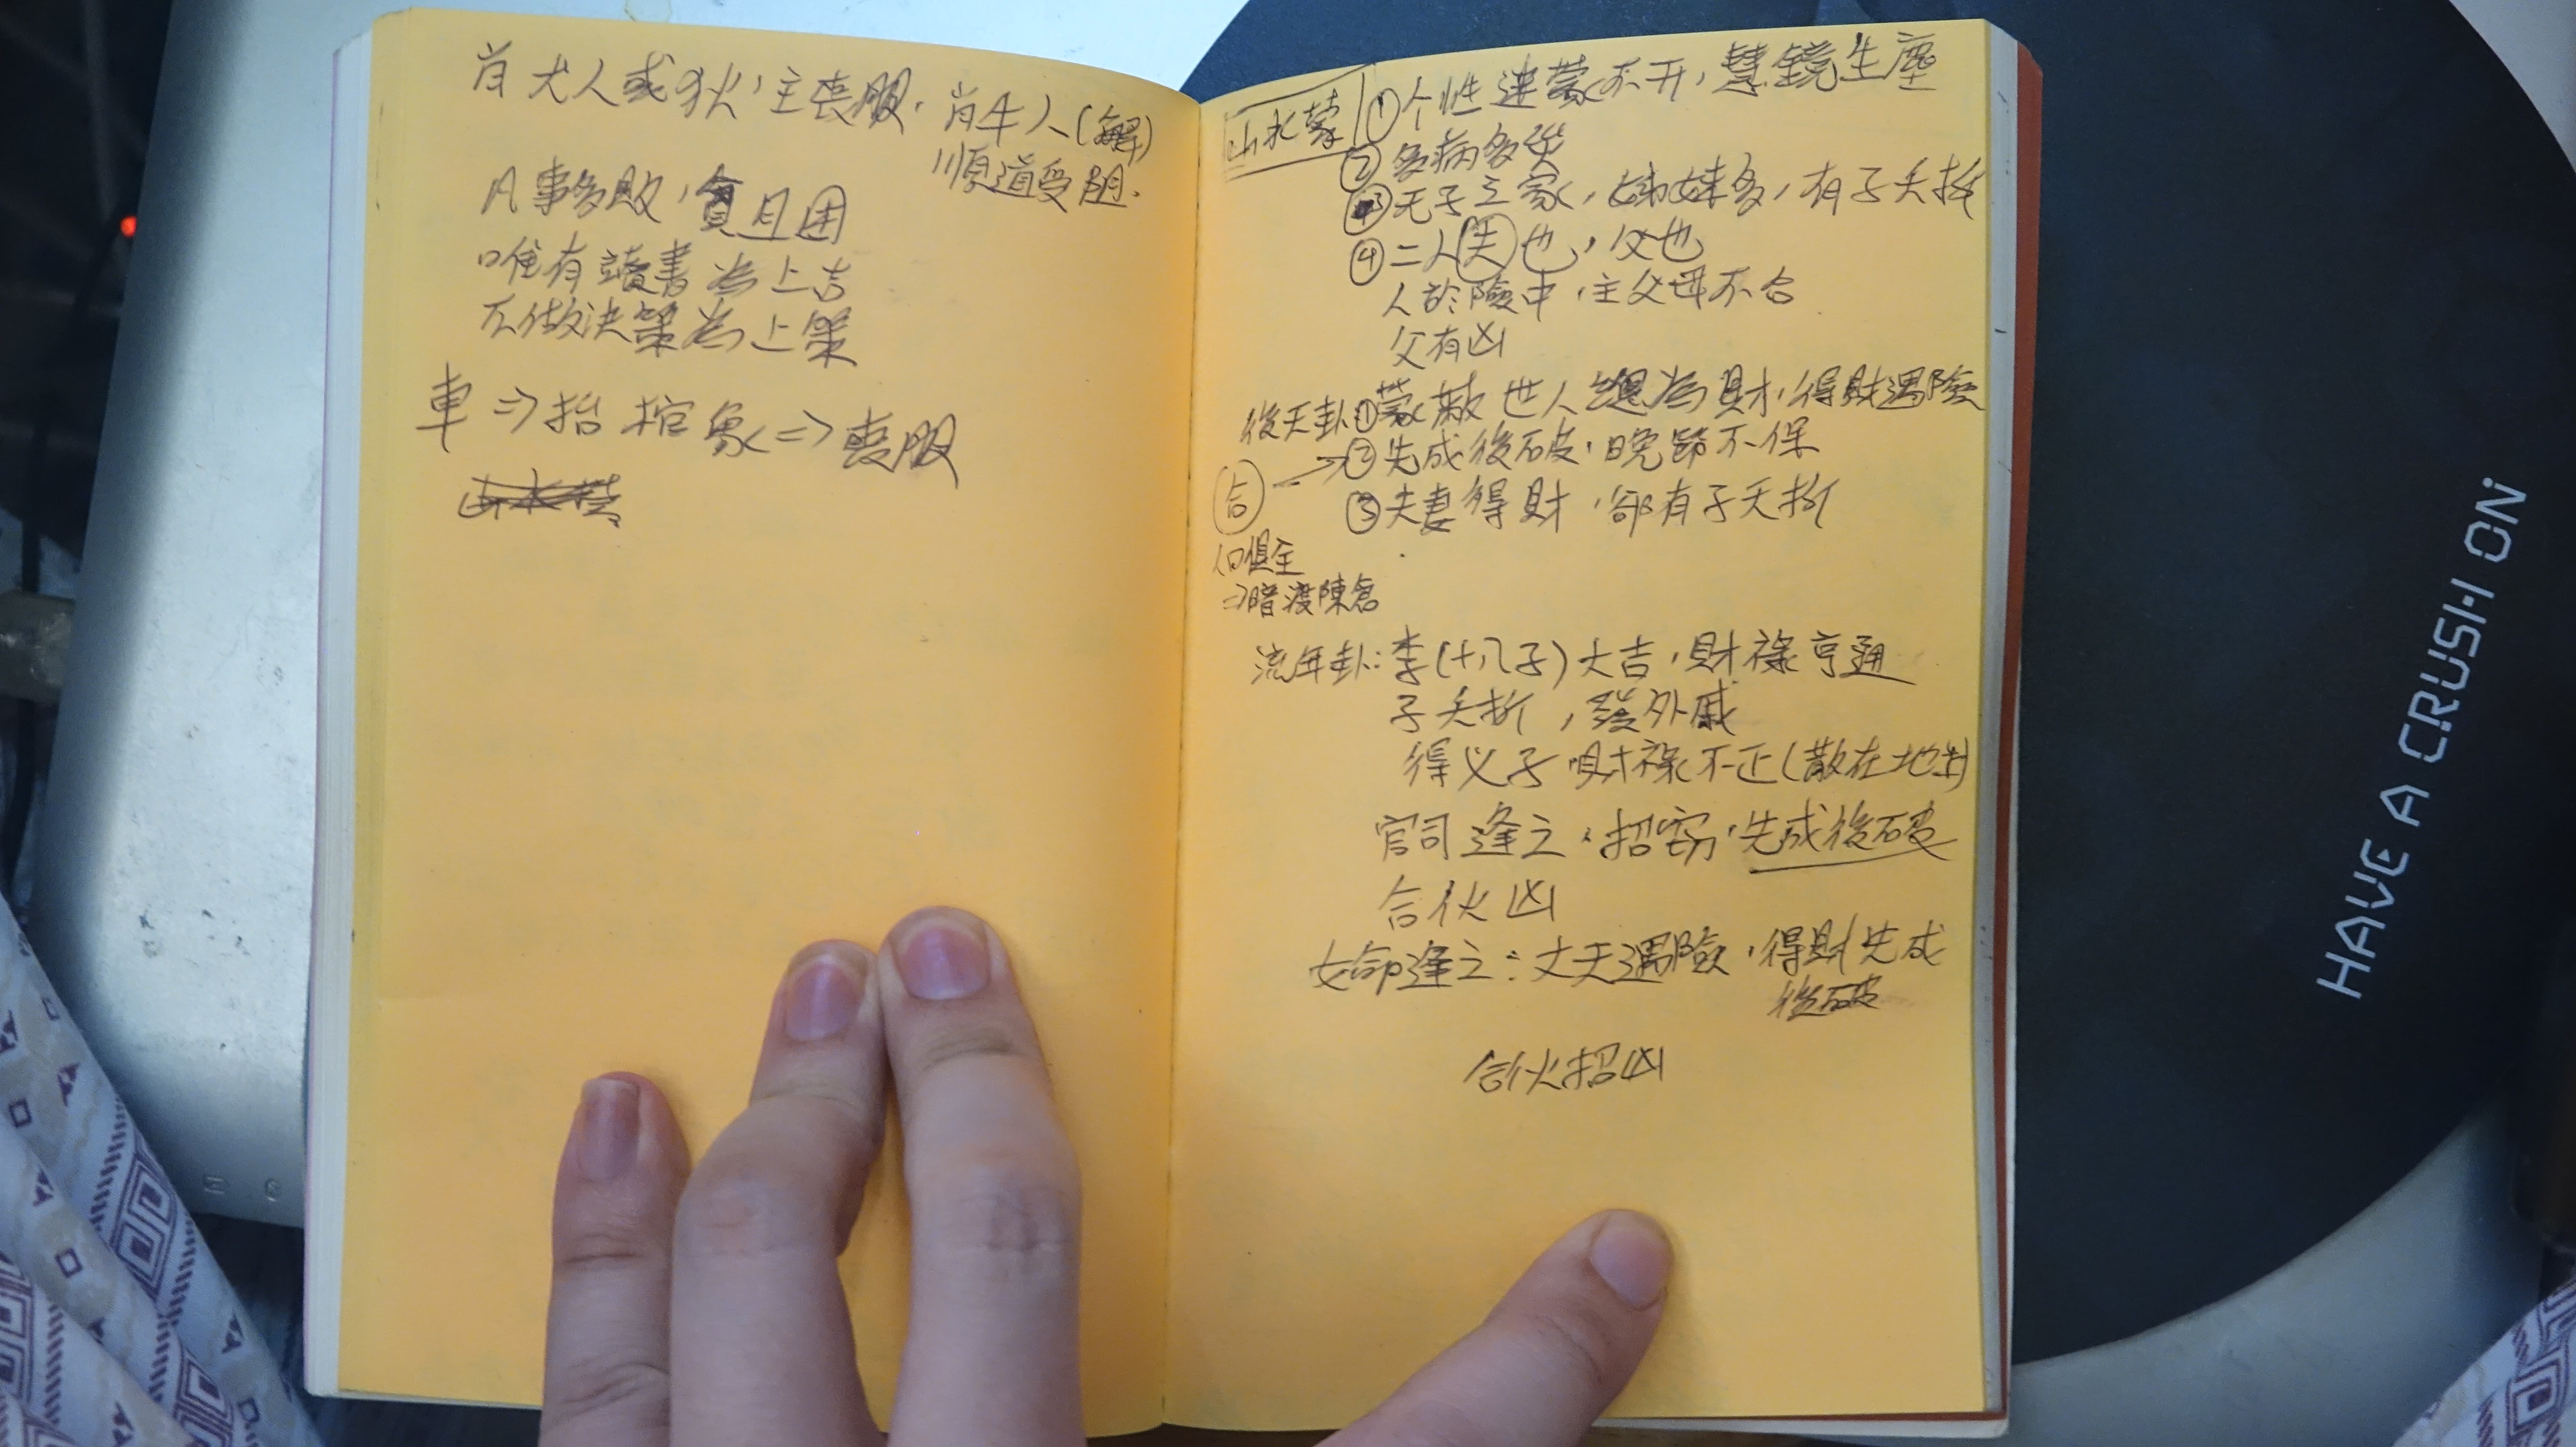 肖犬人或狄，主喪服，肖牛人(解)
順道受阻.
凡事多敗，貧且困
唯有讀書為上吉
不做決策為上策
車⇒抬棺象⇒喪服
山水蒙
山水蒙
①个性迷蒙不开，慧鏡生塵
②多病多災
③无子立家，姊妹多，有子夭折
④二人夫也，父也
人於險中，主父母不合
父有凶
後天卦①蒙蔽世人總為財，得財遇險
②先成後破，晚節不保
合→
③夫妻得財，卻有子夭折
人口俱全
⇒暗渡陳倉
流年卦：李(十八子)大吉，財祿亨通
子夭折，發外戚
得义子財祿不正(散在地出)
官司逢之，招窃，先成後破
合伙凶
女命逢之：丈夫遇險，得財先成
後破
合伙招凶
HAVE A CRUSH ON